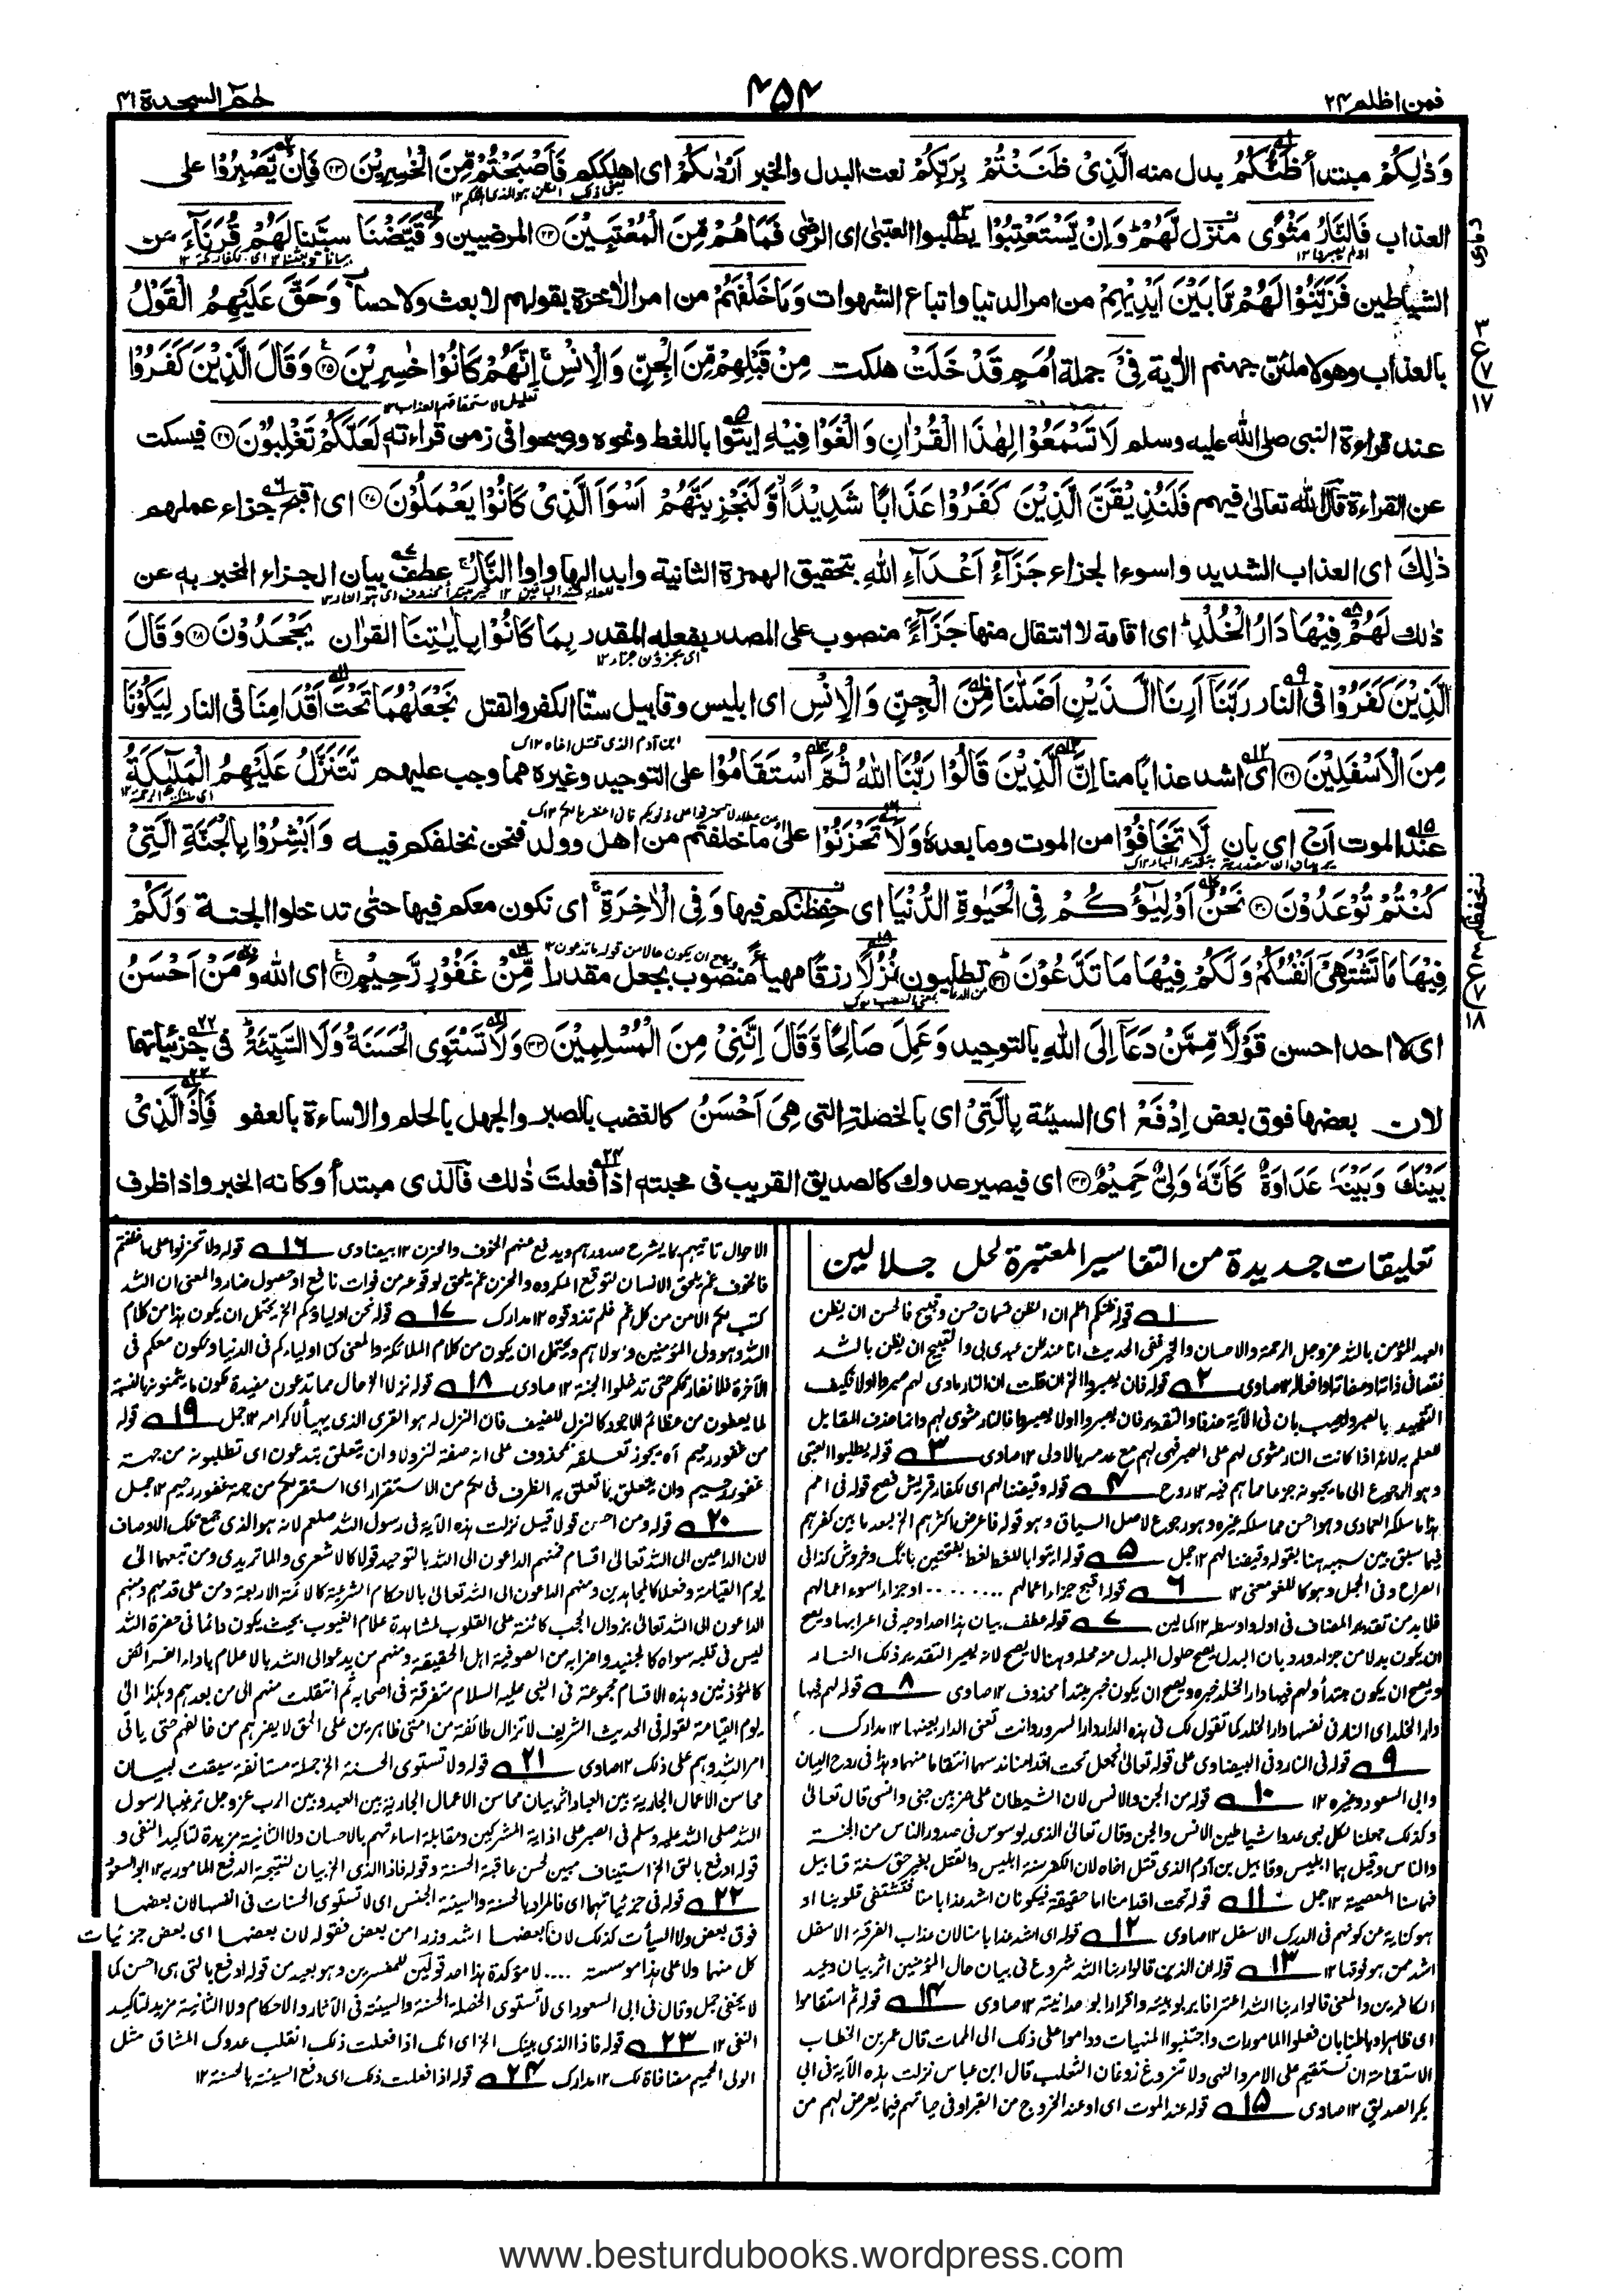 فمن اظلم ۲۴
۴۵۴
حٰمٓ السجدة ۴۱
وَذٰلِكُمْ مبتدأ ظَنُّكُمُ بدل منه الَّذِیْ ظَنَنْتُمْ بِرَبِّكُمْ نعت البدل والخبر اَرْدٰىكُمْ ای اهلككم فَاَصْبَحْتُمْ مِّنَ الْخٰسِرِیْنَ ۲۳ فَاِنْ یَّصْبِرُوْا علی
العذاب فَالنَّارُ مَثْوًى منزل لَّهُمْ وَاِنْ یَّسْتَعْتِبُوْا یطلبوا العتبٰی ای الرضٰی فَمَا هُمْ مِّنَ الْمُعْتَبِیْنَ ۲۴ المرضیین وَقَیَّضْنَا سببنا لَهُمْ قُرَنَآءَ من
الشیاطین فَزَیَّنُوْا لَهُمْ مَّا بَیْنَ اَیْدِیْهِمْ من امر الدنیا واتباع الشهوات وَمَا خَلْفَهُمْ من امر الاٰخرة بقولهم لا بعث ولا حساب وَحَقَّ عَلَیْهِمُ الْقَوْلُ
بالعذاب وهو لاملئن جهنم الاٰیة فِیْٓ جملة اُمَمٍ قَدْ خَلَتْ هلكت مِنْ قَبْلِهِمْ مِّنَ الْجِنِّ وَالْاِنْسِ اِنَّهُمْ كَانُوْا خٰسِرِیْنَ ۲۵ وَقَالَ الَّذِیْنَ كَفَرُوْا
عند قراءة النبی صلی الله علیه وسلم لَا تَسْمَعُوْا لِهٰذَا الْقُرْاٰنِ وَالْغَوْا فِیْهِ ایتوا باللغط ونحوه وصیحوا فی زمن قراءته لَعَلَّكُمْ تَغْلِبُوْنَ ۲۶ فیسكت
عن القراءة قال الله تعالٰی فیهم فَلَنُذِیْقَنَّ الَّذِیْنَ كَفَرُوْا عَذَابًا شَدِیْدًا وَّلَنَجْزِیَنَّهُمْ اَسْوَاَ الَّذِیْ كَانُوْا یَعْمَلُوْنَ ۲۷ ای اقبح جزاء عملهم
ذٰلِكَ ای العذاب الشدید واسوءا لجزاء جَزَآءُ اَعْدَآءِ اللهِ بتحقیق الهمزة الثانیة وابدالها واوا النَّارُ عطف بیان الجزاء المخبر به عن
ذٰلك لَهُمْ فِیْهَا دَارُ الْخُلْدِ ای اقامة لا انتقال منها جَزَآءً منصوب علی المصدر بفعله المقدر بِمَا كَانُوْا بِاٰیٰتِنَا القراٰن یَجْحَدُوْنَ ۲۸ وَقَالَ
الَّذِیْنَ كَفَرُوْا فی النار رَبَّنَآ اَرِنَا الَّذَیْنِ اَضَلّٰنَا مِنَ الْجِنِّ وَالْاِنْسِ ای ابلیس وقابیل سنّا الكفر والقتل نَجْعَلْهُمَا تَحْتَ اَقْدَامِنَا فی النار لِیَكُوْنَا
مِنَ الْاَسْفَلِیْنَ ۲۹ ای اشد عذابًا منا اِنَّ الَّذِیْنَ قَالُوْا رَبُّنَا اللهُ ثُمَّ اسْتَقَامُوْا علی التوحید وغیره مما وجب علیهم تَتَنَزَّلُ عَلَیْهِمُ الْمَلٰٓئِكَةُ
عند الموت اَنْ ای بان لَّا تَخَافُوْا من الموت وما بعده وَلَا تَحْزَنُوْا علٰی ما خلفتم من اهل وولد فنحن نخلفكم فیه وَاَبْشِرُوْا بِالْجَنَّةِ الَّتِیْ
كُنْتُمْ تُوْعَدُوْنَ ۳۰ نَحْنُ اَوْلِیٰٓؤُكُمْ فِی الْحَیٰوةِ الدُّنْیَا ای حفظنكم فیها وَفِی الْاٰخِرَةِ ای نكون معكم فیها حتٰی تدخلوا الجنة وَلَكُمْ
فِیْهَا مَا تَشْتَهِیْٓ اَنْفُسُكُمْ وَلَكُمْ فِیْهَا مَا تَدَّعُوْنَ ۳۱ تطلبون نُزُلًا رزقًا مهیأ منصوب بجعل مقدرا مِّنْ غَفُوْرٍ رَّحِیْمٍ ۳۲ ای الله وَمَنْ اَحْسَنُ
ای لا احد احسن قَوْلًا مِّمَّنْ دَعَآ اِلَی اللهِ بالتوحید وَعَمِلَ صَالِحًا وَّقَالَ اِنَّنِیْ مِنَ الْمُسْلِمِیْنَ ۳۳ وَلَا تَسْتَوِی الْحَسَنَةُ وَلَا السَّیِّئَةُ فی جزئیاتها
لان بعضها فوق بعض اِدْفَعْ ای السیئة بِالَّتِیْ ای بالخصلة التی هِیَ اَحْسَنُ كالغضب بالصبر والجهل بالحلم والاساءة بالعفو فَاِذَا الَّذِیْ
بَیْنَكَ وَبَیْنَهٗ عَدَاوَةٌ كَاَنَّهٗ وَلِیٌّ حَمِیْمٌ ۳۴ ای فیصیر عدوك كالصدیق القریب فی محبته اذا فعلت ذٰلك فالذی مبتدأ وكانه الخبر واذا ظرف
تعلیقات جدیدة من التفاسیر المعتبرة لحل جلالین
۱ قوله ظنكم اعلم ان الظن قسمان حسن وقبیح فالحسن ان یظن
العبد المؤمن بالله عزوجل الرحمة والاحسان والخیر ففی الحدیث انا عند ظن عبدی بی والقبیح ان یظن بالله
نقصا فی ذاته او صفاته او افعاله ۱۲ صاوی ۲ قوله فان یصبروا الخ ان قلت ان النار ماوی لهم صبروا اولا فكیف
التقیید بالصبر واجیب بان فی الآیة حذفا والتقدیر فان یصبروا اولا یصبروا فالنار مثوی لهم وانما حذف المقابل
للعلم به لانه اذا كانت النار مثوی لهم علی الصبر فهی لهم مع عدمه بالاولی ۱۲ صاوی ۳ قوله یطلبوا العتبی
وهو الرجوع الی ما یحبونه جزعا مما هم فیه ۱۲ روح ۴ قوله وقیضنا لهم ای لكفار قریش فصح قوله فی امم
هذا ما سلكه العمادی وهو احسن مما سلكه غیره وهو رجوع لاصل السیاق وهو قوله فاعرض اكثرهم الخ بعد ما بین كفرهم
فیما سبق بین سببه هنا بقوله وقیضنا لهم ۱۲ جمل ۵ قوله ایتوا باللغط لغط بفتحتین بانگ وخروش كذا فی
الصراح وفی الجمل وهو كاللغو معنی ۱۲ ۶ قوله اقبح جزاء اعمالهم ........ او جزاء اسوء اعمالهم
فلا بد من تقدیر المضاف فی اوله او اوسطه ۱۲ كمالین ۷ قوله عطف بیان هذا احد اوجه فی اعرابها ویصح
ان یكون بدلا من جزاء ورد بان البدل یصح حلول المبدل منه محله وهنا لا یصح لانه یصیر التقدیر ذلك النار
ویصح ان یكون مبتدأ ولهم فیها دار الخلد خبره ویصح ان یكون خبر مبتدأ محذوف ۱۲ صاوی ۸ قوله لهم فیها
دار الخلد ای النار فی نفسها دار الخلد كما تقول لك فی هذه الدار دار السرور وانت تعنی الدار بعینها ۱۲ مدارك
۹ قوله فی النار وفی البیضاوی علی قوله تعالیٰ نجعل تحت اقدامنا ندسهما انتقاما منهما وهذا فی روح البیان
وابی السعود وغیره ۱۲ ۱۰ قوله من الجن والانس لان الشیطان علی ضربین جنی وانسی قال تعالیٰ
وكذلك جعلنا لكل نبی عدوا شیاطین الانس والجن وقال تعالیٰ الذی یوسوس فی صدور الناس من الجنة
والناس وقیل هما ابلیس وقابیل بن آدم الذی قتل اخاه لان الكفر سنة ابلیس والقتل بغیر حق سنة قابیل
فهما سنا المعصیة ۱۲ جمل ۱۱ قوله تحت اقدامنا اما حقیقة فیكونان اشد عذابا منا فتشتفی قلوبنا او
هو كنایة عن كونهم فی الدرك الاسفل ۱۲ صاوی ۱۲ قوله ای اشد عذابا منا لان عذاب الفرقة الاسفل
اشد من هو فوقها ۱۲ ۱۳ قوله ان الذین قالوا ربنا الله شروع فی بیان حال المؤمنین اثر بیان وعید
الكافرین والمعنی قالوا ربنا الله اعترافا بربوبیته واقرارا بوحدانیته ۱۲ صاوی ۱۴ قوله ثم استقاموا
ای ظاهرا وباطنا بان فعلوا المامورات واجتنبوا المنهیات وداموا علی ذلك الی الممات قال عمر بن الخطاب
الاستقامة ان تستقیم علی الامر والنهی ولا تزوغ زوغان الثعلب قال ابن عباس نزلت هذه الآیة فی ابی
بكر الصدیق ۱۲ صاوی ۱۵ قوله عند الموت ای او عند الخروج من القبر او فی حیاتهم فیما یعرض لهم من
الاحوال تاتیهم بما یشرح صدورهم ویدفع عنهم الخوف والحزن ۱۲ بیضاوی ۱۶ قوله ولا تحزنوا علی ما خلفتم
فالخوف غم یلحق الانسان لتوقع المكروه والحزن غم یلحق لوقوعه من فوات نافع او حصول ضار والمعنی ان الله
كتب لكم الامن من كل غم فلم تذوقوه ۱۲ مدارك ۱۷ قوله نحن اولیاؤكم الخ یحتمل ان یكون هذا من كلام
الله وهو ولی المؤمنین ومولاهم ویحتمل ان یكون من كلام الملائكة والمعنی كنا اولیاءكم فی الدنیا ونكون معكم فی
الآخرة فلا نفارقكم حتی تدخلوا الجنة ۱۲ صاوی ۱۸ قوله نزلا الخ حال مما تدعون مفیدة لكون ما یتمنونه بالنسبة
لما یعطون من عظائم الاجود كالنزل للضیف فان النزل له هو القری الذی یهیأ لاكرامه ۱۲ جمل ۱۹ قوله
من غفور رحیم آه یجوز تعلقه بمحذوف علی انه صفة لنزلا وان یتعلق بتدعون ای تطلبونه من جهة
غفور رحیم وان یتعلق بما تعلق به الظرف فی لكم من الاستقرار ای استقر لكم من جهة غفور رحیم ۱۲ جمل
۲۰ قوله ومن احسن قولا قیل نزلت هذه الآیة فی رسول الله صلعم لانه هو الذی جمع تلك الاوصاف
لان الداعین الی الله تعالیٰ اقسام فمنهم الداعون الی الله بالتوحید قولا كالاشعری والماتریدی ومن تبعهما الی
یوم القیامة وفعلا كالمجاهدین ومنهم الداعون الی الله تعالیٰ بالاحكام الشرعیة كالائمة الاربعة ومن علی قدمهم ومنهم
الداعون الی الله تعالیٰ بزوال الحجب كائنة علی القلوب لمشاهدة علام الغیوب بحیث یكون دائما فی حضرة الله
لیس فی قلبه سواه كالجنید واضرابه من الصوفیة اهل الحقیقة ومنهم من یدعو الی الله بالاعلام باداء الفرائض
كالمؤذنین وهذه الاقسام مجموعة فی النبی علیه السلام متفرقة فی اصحابه ثم انتقلت منهم الی من بعدهم وهكذا الی
یوم القیامة لقوله فی الحدیث الشریف لا تزال طائفة من امتی ظاهرین علی الحق لا یضرهم من خالفهم حتی یاتی
امر الله وهم علی ذلك ۱۲ صاوی ۲۱ قوله ولا تستوی الحسنة الخ جملة مستانفة سیقت لبیان
محاسن الاعمال الجاریة بین العباد اثر بیان محاسن الاعمال الجاریة بین العبد وبین الرب عزوجل ترغیبا لرسول
الله صلی الله علیه وسلم فی الصبر علی اذایة المشركین ومقابلة اساءتهم بالاحسان ولا الثانیة مزیدة لتاكید النفی و
قوله ادفع بالتی الخ استیناف مبین لحسن عاقبة الحسنة وقوله فاذا الذی الخ بیان لنتیجة الدفع المامور به ۱۲ ابو السعود
۲۲ قوله فی جزئیاتهما ای فالمراد بالحسنة والسیئة الجنس ای لا تستوی الحسنات فی انفسها لان بعضها
فوق بعض ولا السیآت كذلك لان بعضها اشد وزرا من بعض فقوله لان بعضها ای بعض جزئیات
كل منهما ولا علی هذا موسسة .... لا مؤكدة هذا احد قولین للمفسرین وهو بعید من قوله ادفع بالتی هی احسن كما
لا یخفی جمل وقال فی ابی السعود ای لا تستوی الخصلة الحسنة والسیئة فی الآثار والاحكام ولا الثانیة مزید لتاكید
النفی ۱۲ ۲۳ قوله فاذا الذی بینك الخ ای انك اذا فعلت ذلك انقلب عدوك المشاق مثل
الولی الحمیم مصافاة لك ۱۲ مدارك ۲۴ قوله اذا فعلت ذلك ای دفع السیئة بالحسنة ۱۲
www.besturdubooks.wordpress.com